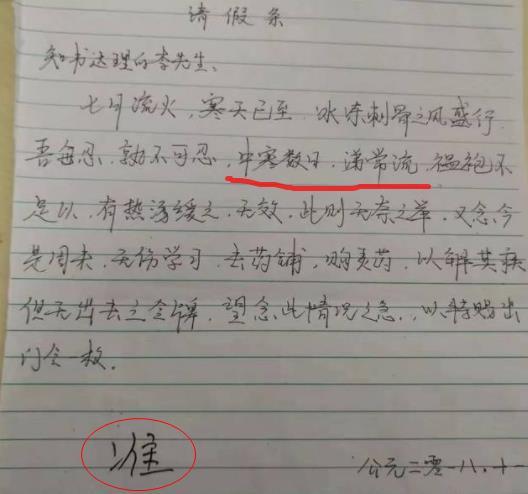 请假条
知书达理的李先生、
七月流火,寒天已至,冰冻刺骨之风盛行
吾每忍,孰不可忍,中寒数日,涕常流,缊袍不
足以,有热汤缓之,无效,此则无奈之举,又念,今
是周末,无伤学习,去药铺,购良药,以解其疾
但无出去之令牌,望念此情况之急,以特赐出
门令一枚.
准
公元二零一八.十一